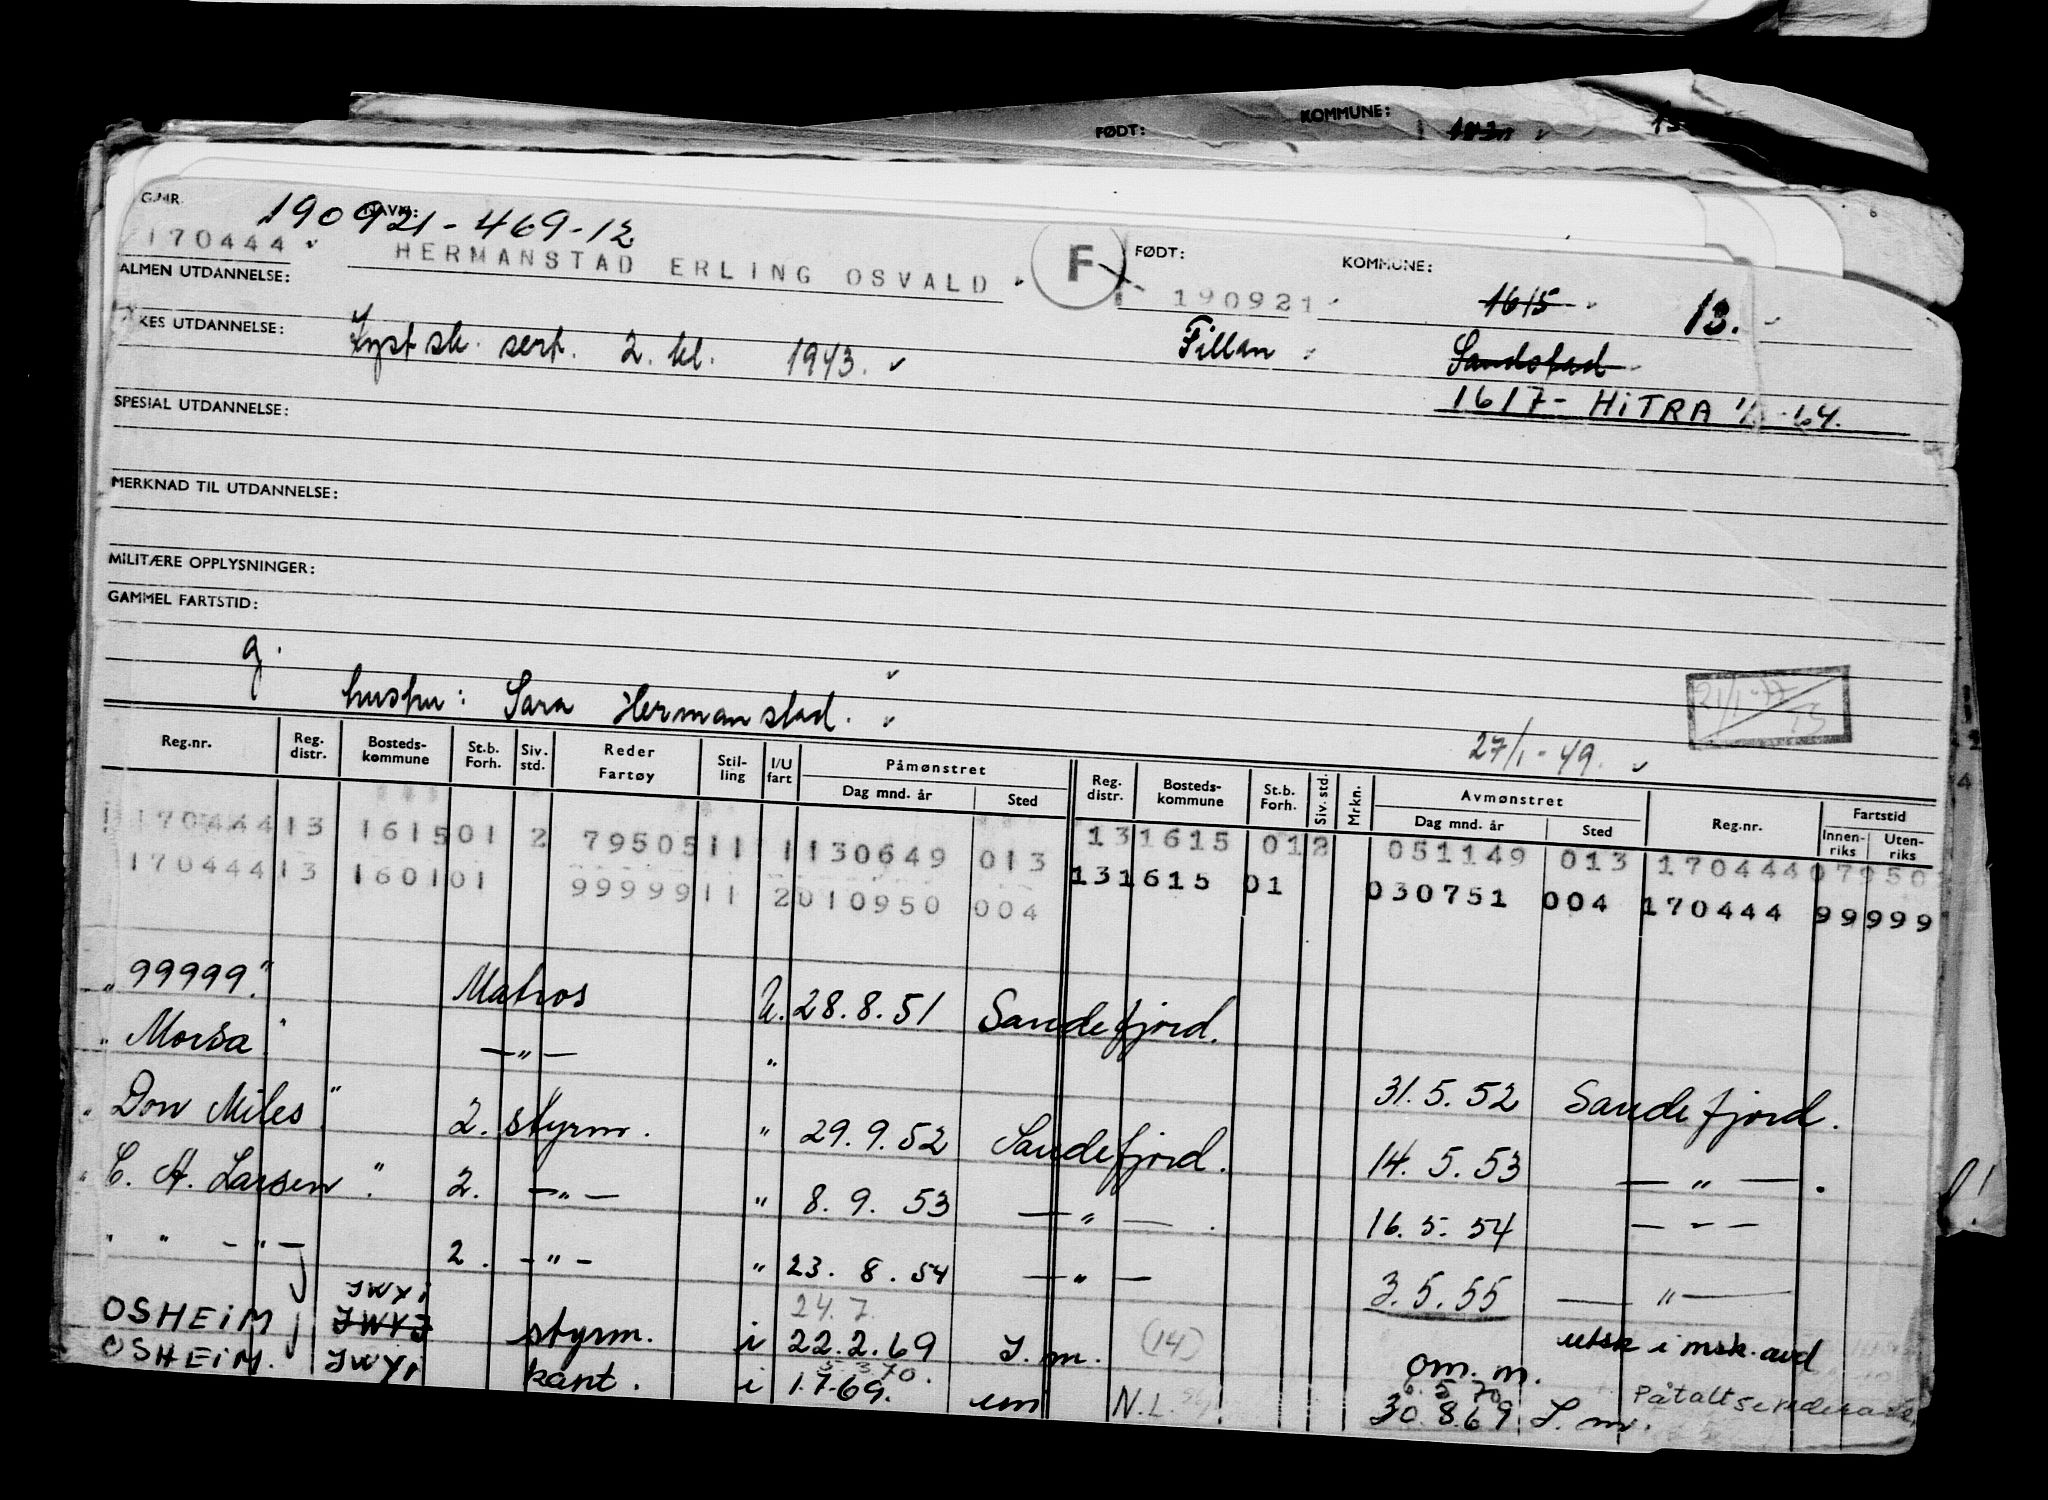 FØDT: KOMMUNE:
G.NR. NAVN: 190921-469-12
170444 HERMANSTAD ERLING OSVALD F FØDT: 190921 KOMMUNE: 1615 13.
ALMEN UTDANNELSE:
YRKES UTDANNELSE: Kyst sk. sert. 2. kl. 1943. Fillan Sandstad
1617- HiTRA 1/1-64.
SPESIAL UTDANNELSE:
MERKNAD TIL UTDANNELSE:
MILITÆRE OPPLYSNINGER:
GAMMEL FARTSTID:
g.
hustru: Sara Hermanstad.
27/1-49.
Reg.nr. Reg. distr. Bosteds-kommune St.b. Forh. Siv. std. Reder Fartøy Stil-ling I/U fart Påmønstret Dag mnd. år Sted Reg. distr. Bosteds-kommune St.b. Forh. Siv. std. Mrkn. Avmønstret Dag mnd. år Sted Reg.nr. Fartstid Innen-riks Uten-riks
170444 13 1615 01 2 79505 11 1 130649 013 13 1615 01 2 051149 013 170444 07950
170444 13 1601 01 99999 11 2 010950 004 13 1615 01 030751 004 170444 99999
"99999." Matros U. 28.8.51 Sandefjord.
"Morsa" —"— " 31.5.52 Sandefjord.
"Don Miles" 2. styrm. " 29.9.52 Sandefjord. 14.5.53 —"—.
"C. A. Larsen" 2. —"— " 8.9.53 —"—. 16.5.54 — - —
" " —"— 2. -"- " 23.8.54 —"— 3.5.55 —"—
JWXi 24.7.
OSHEiM JWYJ styrm. i 22.2.69 S.m. (14) om.m. utsk i msk.avd
5.3.70. 6.5.70
OSHEiM. JWXi kapt. i 1.7.69. um N.L. 30.8.69 S.m. Påtalt